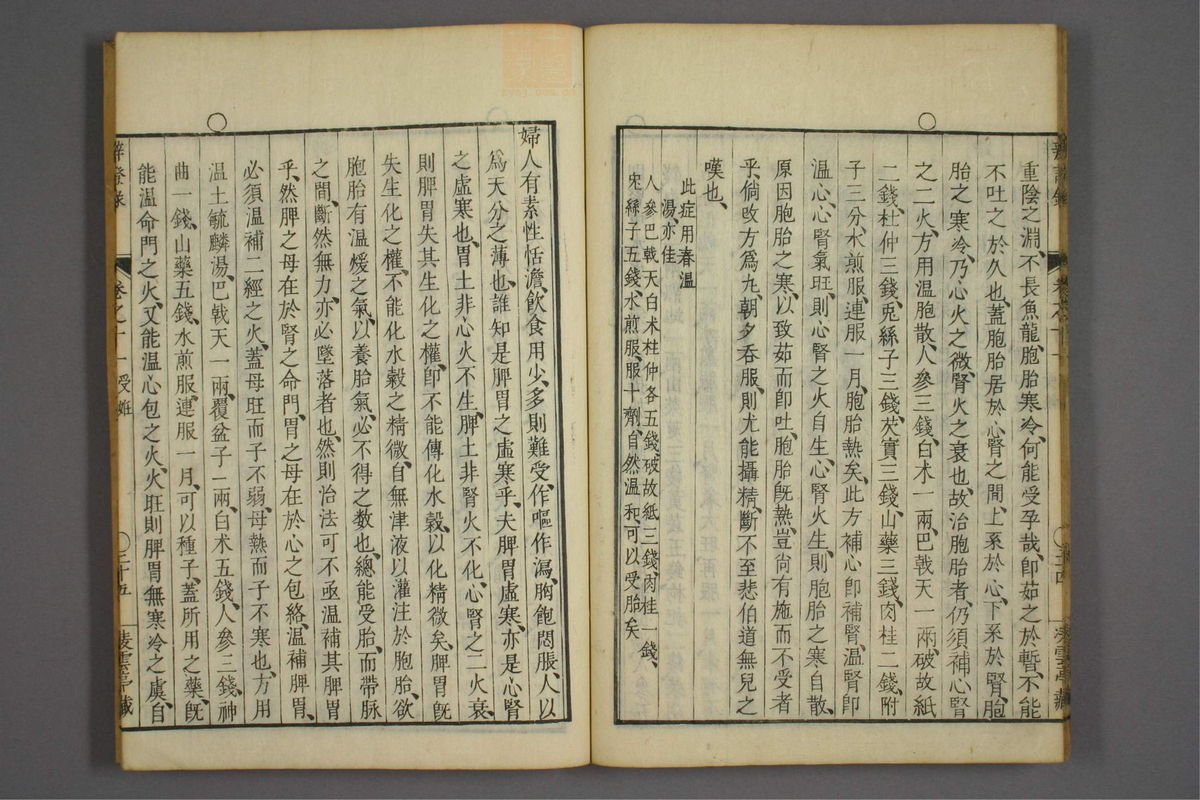 重陰之淵、不長魚龍、胞胎寒冷、何能受孕哉、卽茹之於暫、不能
不吐之於久也、蓋胞胎居於心腎之間、上系於心、下系於腎、胞
胎之寒冷、乃心火之微、腎火之衰也、故治胞胎者、仍須補心腎
之二火、方用温胞散、人參三錢、白术一兩、巴戟天一兩、破故紙
二錢、杜仲三錢、兎絲子三錢、芡實三錢、山藥三錢、肉桂二錢、附
子三分、水煎服、連服一月、胞胎熱矣、此方補心卽補腎、温腎卽
温心、心腎氣旺、則心腎之火自生、心腎火生、則胞胎之寒自散、
原因胞胎之寒、以致茹而卽吐、胞胎旣熱、豈尚有施而不受者
乎、倘改方爲丸、朝夕吞服、則尤能攝精、斷不至悲伯道無兒之
嘆也、
此症用春温
湯、亦佳
人參巴戟天白术杜仲各五錢、破故紙三錢、肉桂一錢、
兎絲子五錢、水煎服、服十劑、自然温和、可以受胎矣
婦人有素性恬澹、飲食用少、多則難受、作嘔作瀉、胸飽悶脹、人以
爲天分之薄也、誰知是脾胃之虛寒乎、夫脾胃虛寒、亦是心腎
之虛寒也、胃土非心火不生、脾土非腎火不化、心腎之二火衰、
則脾胃失其生化之權、卽不能傳化水穀、以化精微矣、脾胃旣
失生化之權、不能化水穀之精微、自無津液以灌注於胞胎、欲
胞胎有温煖之氣、以養胎氣、必不得之數也、總能受胎、而帶脉
之間、斷然無力、亦必墜落者也、然則治法可不亟温補其脾胃
乎、然脾之母在於腎之命門、胃之母在於心之包絡、温補脾胃、
必須温補二經之火、蓋母旺而子不弱、母熱而子不寒也、方用
温土毓麟湯、巴戟天一兩、覆盆子一兩、白术五錢、人參三錢、神
曲一錢、山藥五錢、水煎服、連服一月、可以種子、蓋所用之藥、旣
能温命門之火、又能温心包之火、火旺則脾胃無寒冷之虞、自
辨證錄　卷之十一　受姙　三十五　凌雲亭藏